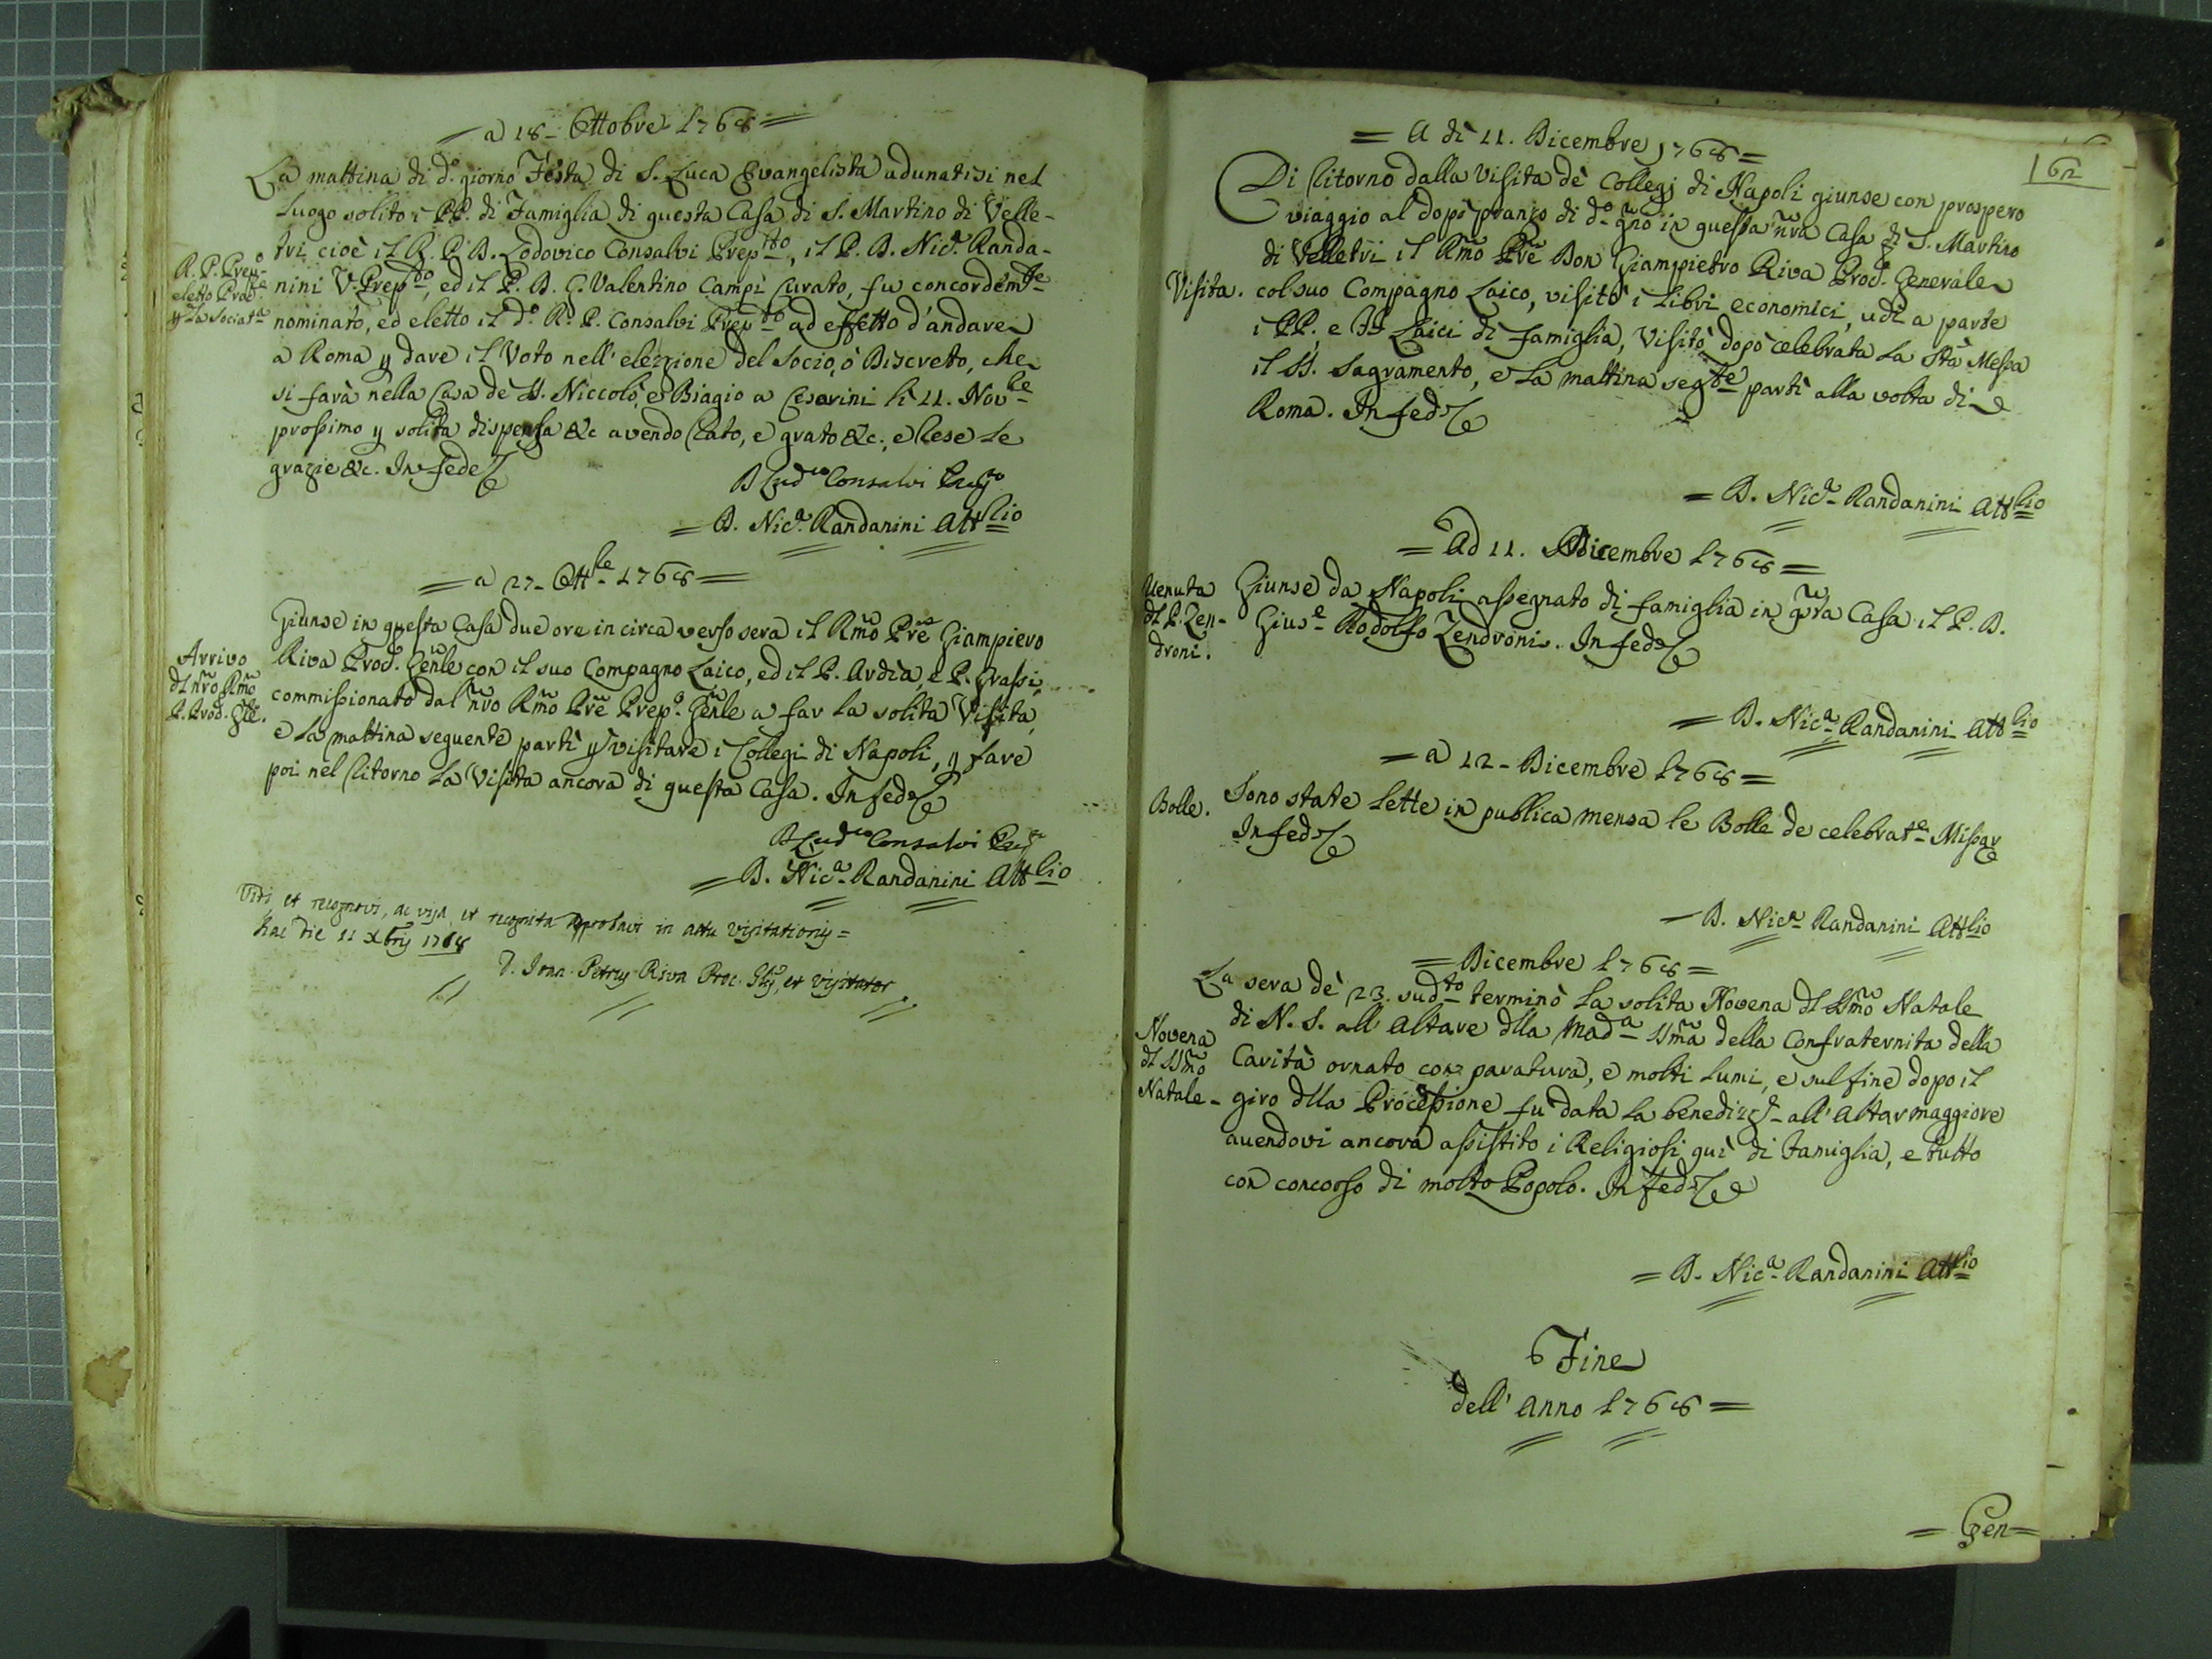 = a 18- Ottobre 1768 =
La mattina di d.o giorno Festa di S. Luca Evangelista adunatisi nel
Luogo solito i PP. di Famiglia di questa Casa di S. Martino di Velle-
tri, cioè il R. P. D. Lodovico Consalvi Prep.to, il P. D. Nic.a Randa-
nini V. Prep.to, ed il P. D. G. Valentino Campi Curato, fu concordem.te
nominato, ed eletto il d.o R. P. Consalvi Prep.to ad effetto d'andare
a Roma p dare il Voto nell'elezzione del Socio, ò Discreto, che
si farà nella Casa de SS. Niccolò, e Biagio a Cesarini li 11. Nov.be
prossimo p solita dispensa &c avendo Rato, e grato &c., e Rese le
grazie &c. In fede
R. P. Prep.o
eletto
p la
D Lud.co Consalvi Prep.o
= D. Nic.a Randanini Att.rio
= a 27- Ott.re 1768 =
Giunse in questa Casa due ore in circa verso sera il Rmo Pre Giampiero
Riva Prod. Genle con il suo Compagno Laico, ed il P. Ardia, e P. Grassi,
commissionato dal nro Rmo Pre Prep.o Genle a far la solita Visita,
e la mattina seguente partì p visitare i Collegi di Napoli, p fare
poi nel Ritorno la Visita ancora di questa Casa. In fede
Arrivo
dl nro Rmo
P. Prod. Gle.
D Lud.co Consalvi Prep.o
= D. Nic.a Randanini Att.rio
Vidi et recognovi, ac visa et recognita approbavi in actu visitationis =
hac die 11 Xbris 1768
D. Joan. Petrus Riva Proc. Glis, et visitator
= A dì 11. Dicembre 1768 =
162
Di Ritorno dalla Visita de Collegj di Napoli giunse con prospero
viaggio al dopo pranzo di d.o gno in questa nra Casa di S. Martino
di Velletri il Rmo Pre Don Giampietro Riva Prod. Generale
col suo Compagno Laico, visitò i Libri economici, udì a parte
i PP., e FF Laici di famiglia, Visitò dopo celebrata la Sta Messa
il SS. Sagramento, e la mattina seg.te partì alla volta di
Roma. In fede
Visita.
= D. Nic.a Randanini Att.rio
= Ad 11. Dicembre 1768 =
Giunse da Napoli assegnato di famiglia in qta Casa il P. D.
Gius.e Rodolfo Zendroni. In fede
Venuta
dl P. Zen-
droni.
= D. Nic.a Randanini Att.rio
= a 12- Dicembre 1768 =
Sono state lette in publica mensa le Bolle de celebrat.e Missar
In fede
Bolle.
= D. Nic.a Randanini Att.rio
= Dicembre 1768 =
La sera dè 23. sud.to terminò la solita Novena dl SSmo Natale
di N. S. all'Altare dlla Mad.a SSma della Confraternita della
Carità ornato con paratura, e molti lumi, e sul fine dopo il
giro dlla Processione fu data la benediz.e all'Altar maggiore
avendovi ancora assistito i Religiosi quì di Famiglia, e tutto
con concorso di molto Popolo. In fede
Novena
dl SSmo
Natale-
= D. Nic.a Randanini Att.rio
Fine
dell'anno 1768 =
= Gen =